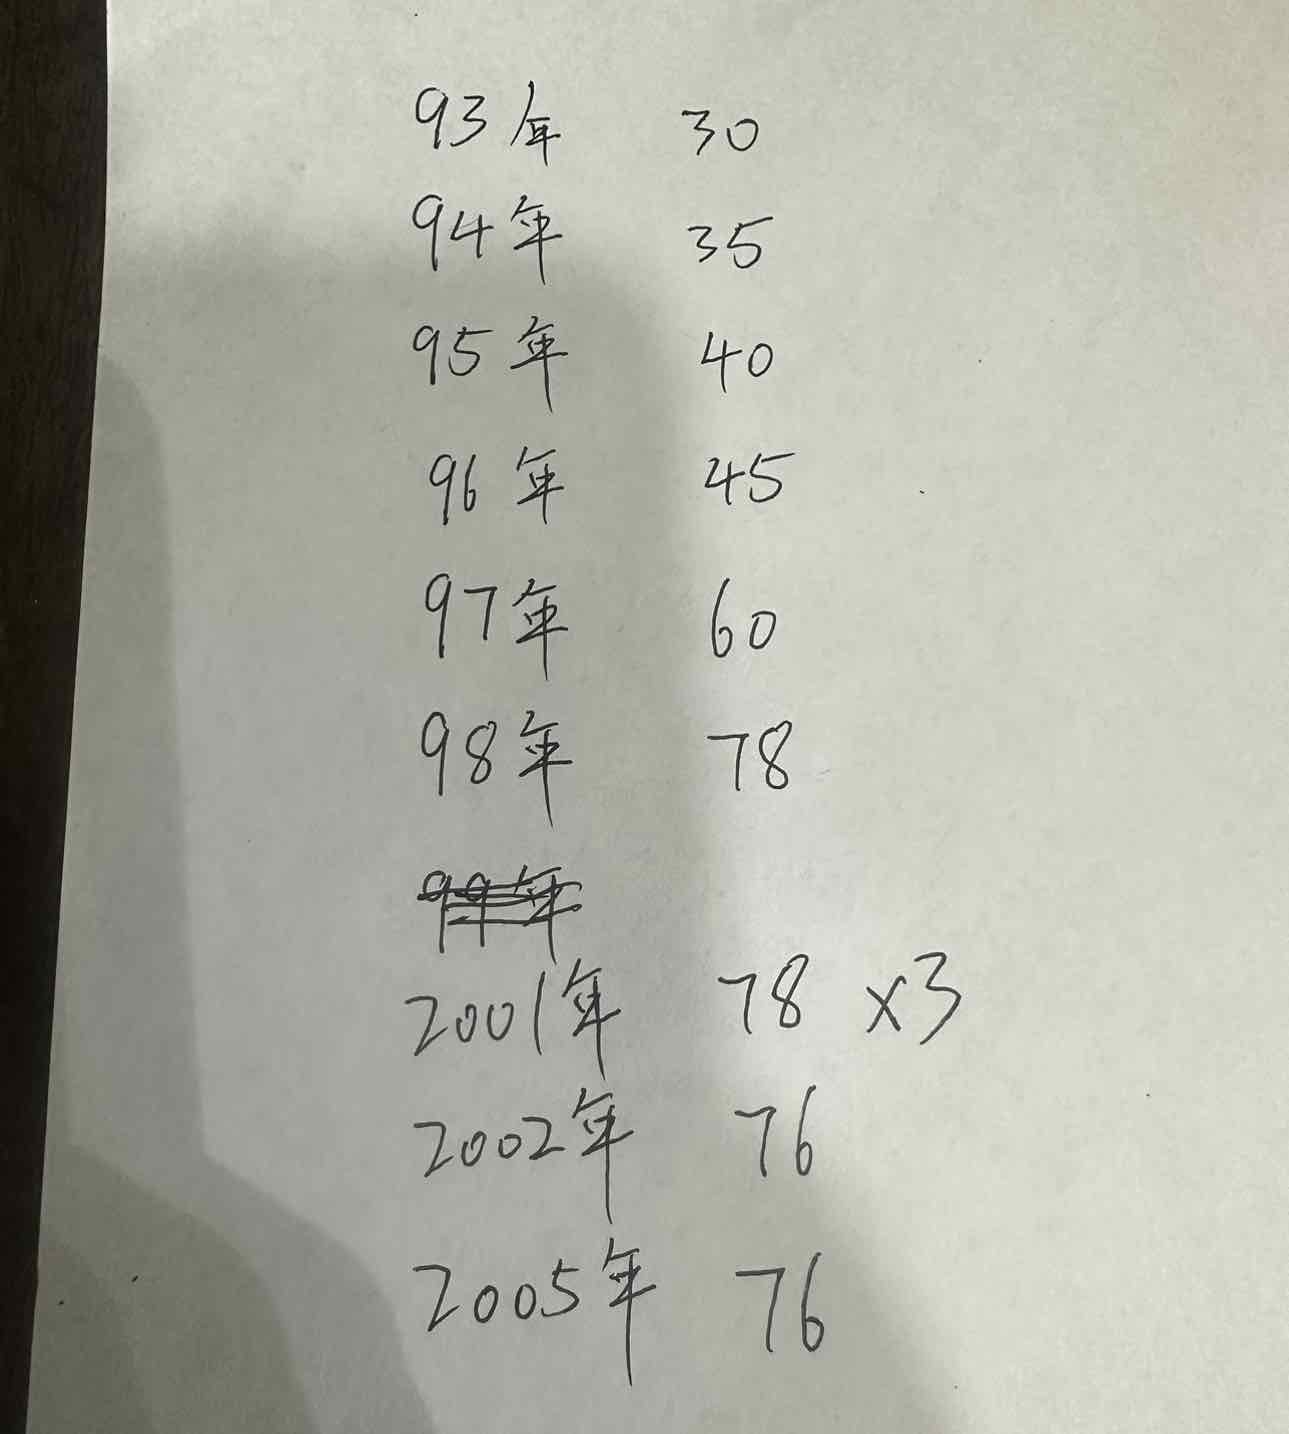 93年 30
94年 35
95年 40
96年 45
97年 60
98年 78
99年
2001年 78 x3
2002年 76
2005年 76